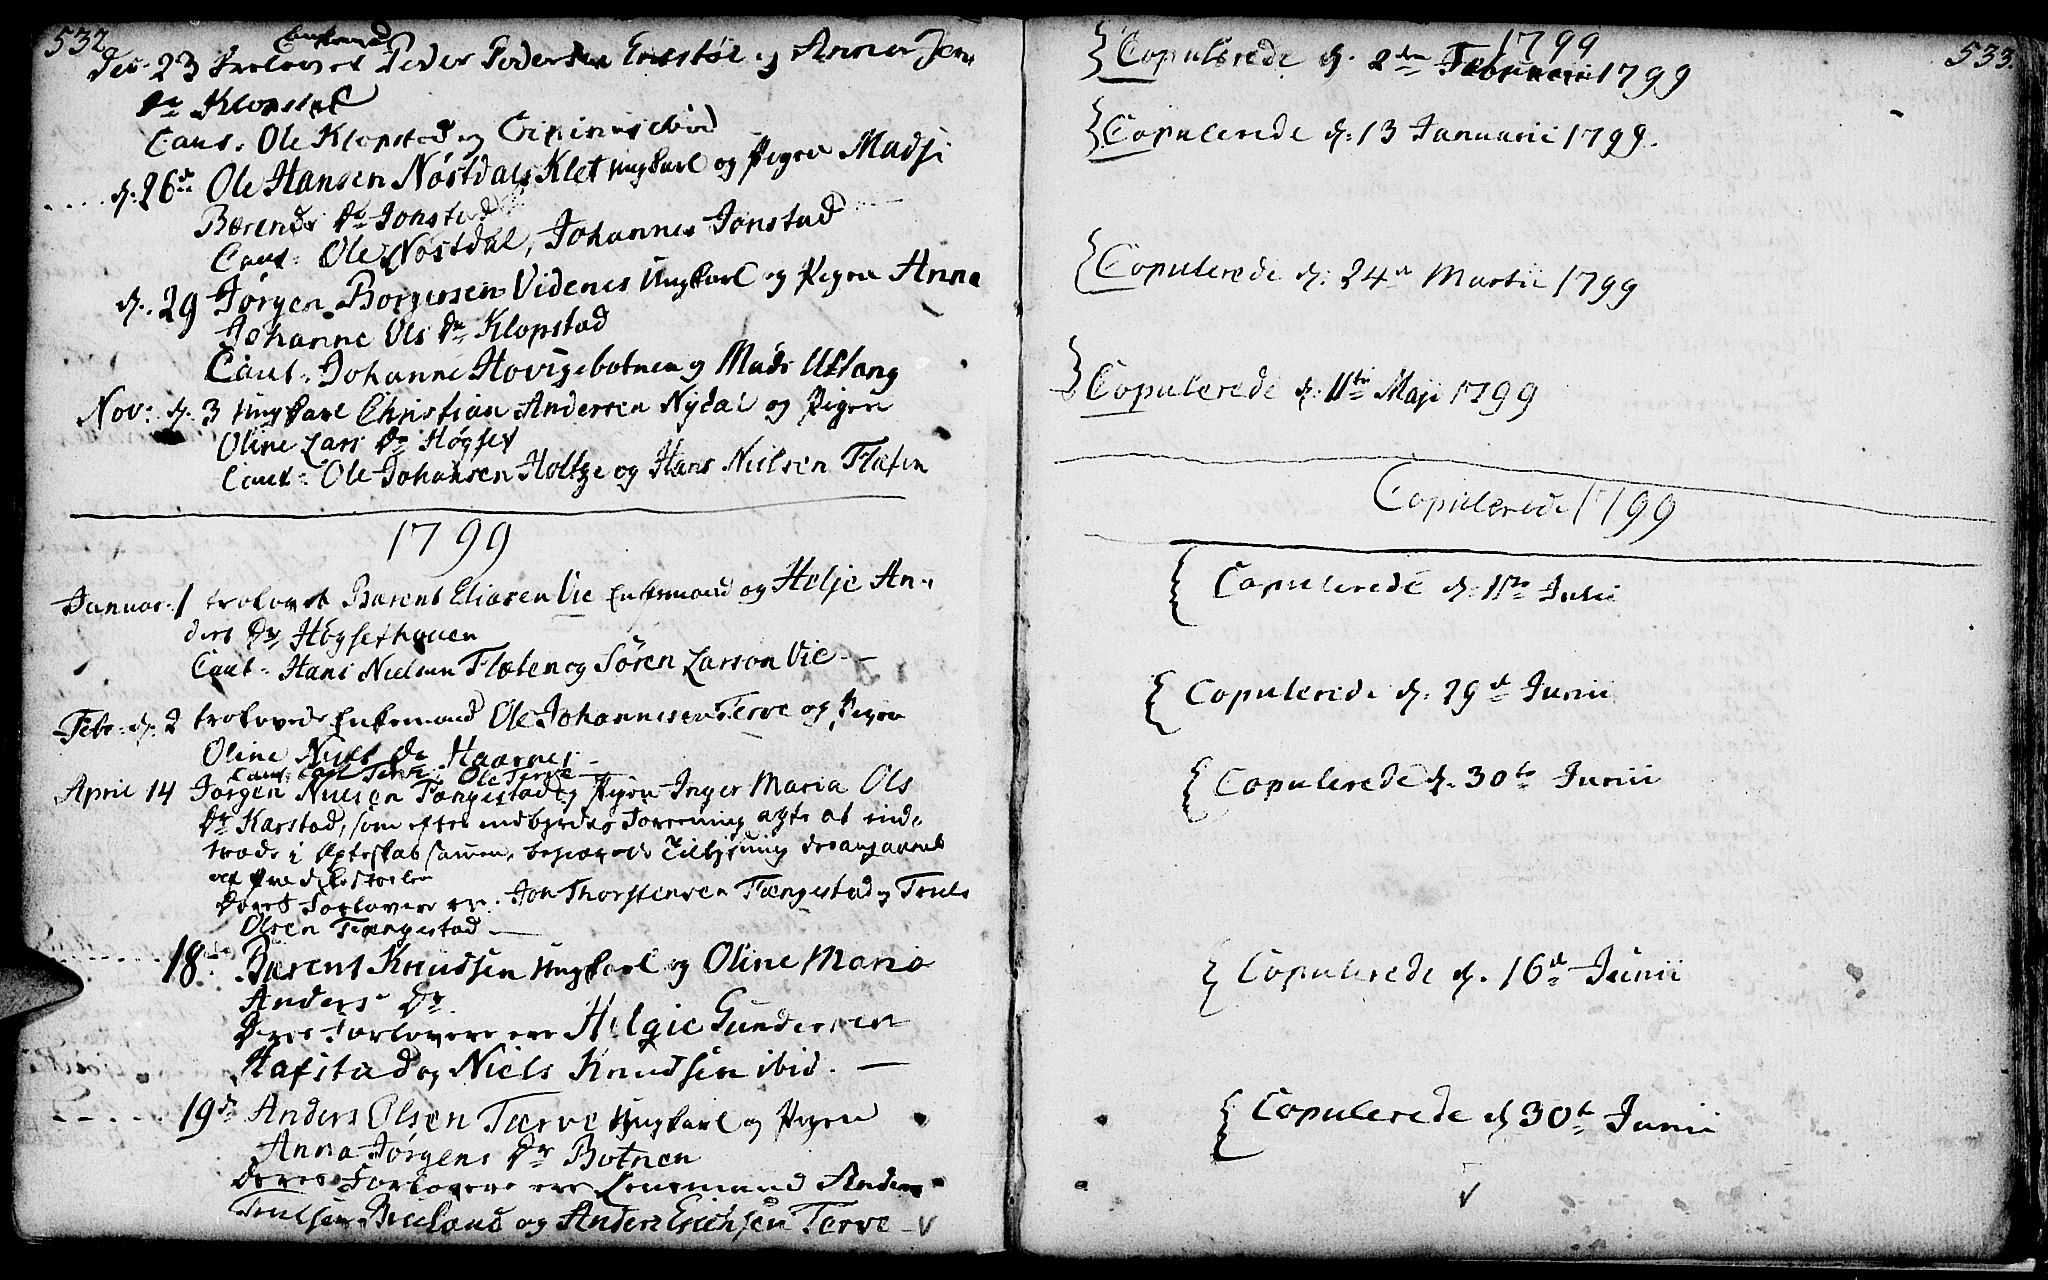 532
Enkemand
Dec. 23 trolovet Peder Pedersen og Anna Jens
Dr Klopstad
Caut. Ole Klopstad og ibid
d: 26de Ole Hansen Nøstdals Klet Ungkarl og Pigen Madzi
Berends Dr Jonstad
Caut: Ole Nøstdal, Johannes Jonstad
d. 29 Jørgen Borgersen Videnes Ungkarl og Pigen Anna
Johanne Ols Dr Klopstad
Caut. Johanne Hovigebotnen og Mads Ustang
Nov: d. 3 Ungkarl Christian Andersen Nydal og Pigen
Oline Lars Dr Høgset
Caut: Ole Johansen Holtze og Hans Nielsen Flaten
1799
Januar. 1 trolovet Barent Eliasen Vie Enkemand og Helje An-
ders Dr Høgsethauen
Caut. Hans Nielsen Flaten og Sören Larson Vie
Febr. d. 2 trolovede Enkemand Ole Johannesen Terve og Pigen
Oline Niels Dr Haarnes
Caut: Lars Terve, Ole Terve
April 14 Jørgen Nielsen Tængestad og Pigen Inger Maria Ols
Dr Karstad, som efter indbyrdes Foreening agte at ind-
træde i Ægteskab sammen, begierede Tillysning desangaaende
af Prædikestolen
Deres Forlovere ere Jon Thorstensen Tængestad og Truls
Olsen Tængestad
18de Barent Knudsen Ungkarl og Oline Maria
Anders Dr
Deres Forlovere ere Helgie Gundersen
Hafstad og Niels Knudsen ibid.
19de Anders Olsen Tærve Ungkarl og Pigen
Anna Jørgens Dr Botnen
Deres Forlovere ere Lensmand Anders
Trulsen Bueland og Anders Erichsen Terve
533.
1799
Copulerede d. 2den Februarii 1799
Copulerede d: 13 Januarii 1799.
Copulerede d: 24de Martii 1799
Copulerede d. 11te Maji 1799
Copulerede 1799
Copulerede d. 11te Julii
Copulerede d. 29de Junii
Copulerede d. 30te Junii
Copulerede d. 16de Junii
Copulerede d 30te Junii